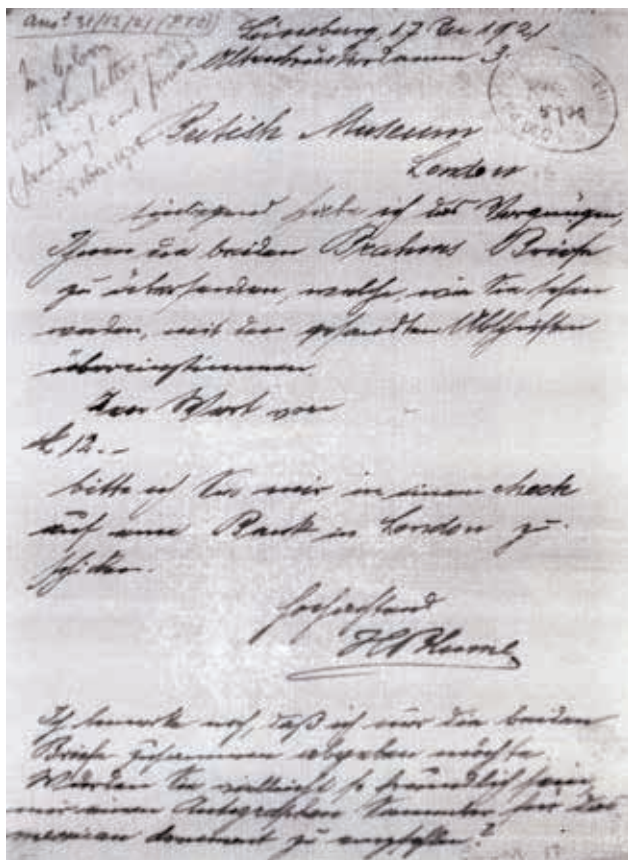 ansd 31/12/21 (PTO)
Lüneburg, 17 Dez 1921
Altenbrückerdamm 3.
British Museum
London
Einliegend habe ich das Vergnügen,
Ihnen die beiden Brahms Briefe
zu übersenden, welche, wie Sie sehen
werden, mit den gesandten Abschriften
übereinstimmen.
Den Wert von
12.-
bitte ich Sie mir in einem check
auf eine Bank in London zu
schicken.
Hochachtend
H Blume
Ich bemerke noch, daß ich nur die beiden
Briefe zusammen abgeben möchte.
Würden Sie vielleicht so freundlich sein,
mir einen Autographen Sammler für das
zu empfehlen?